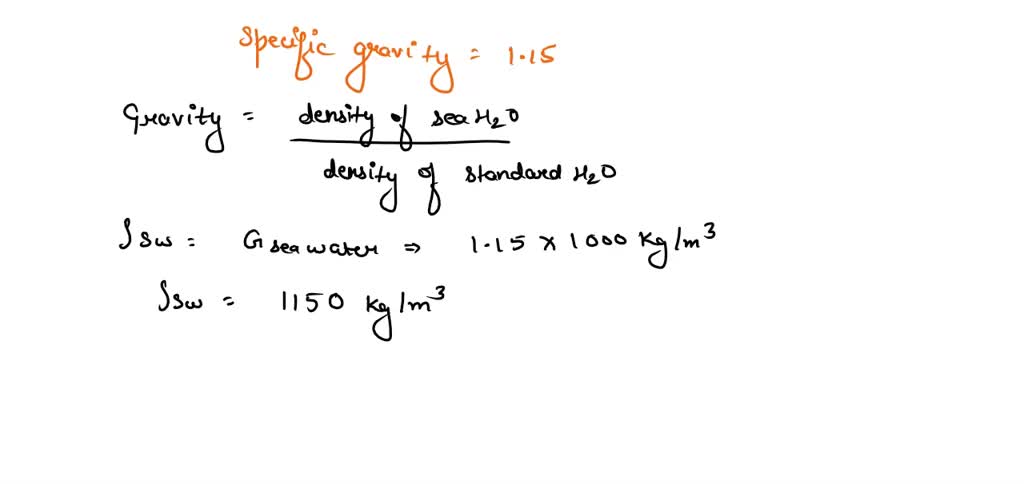 Specific gravity = 1.15
Gravity = density of sea H2O
density of standard H2O
ρsw = G sea water ⇒ 1.15 × 1000 kg/m³
ρsw = 1150 kg/m³